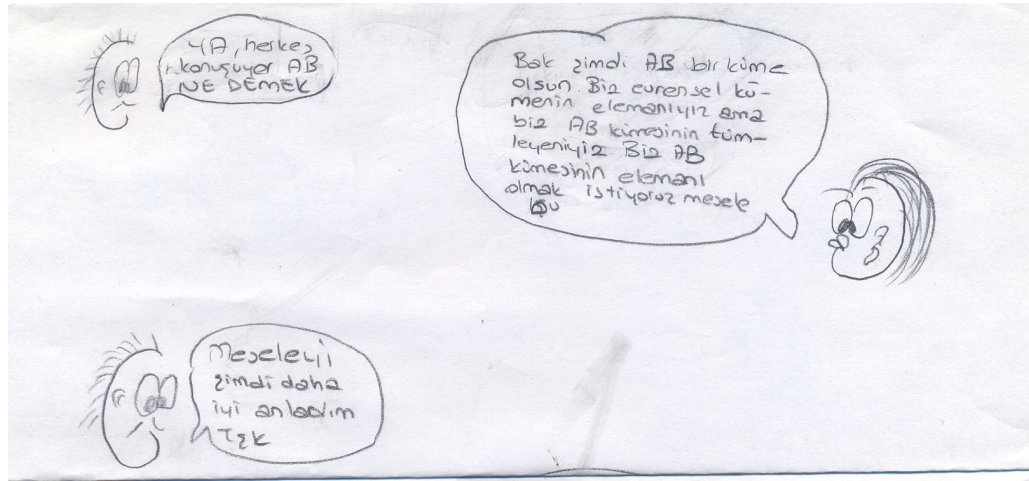 YA, herkes
konuşuyor AB
NE DEMEK
Bak şimdi AB bir küme
olsun. Biz evrensel kü-
menin elemanıyız ama
biz AB kümesinin tüm-
leyeniyiz Biz AB
kümesinin elemanı
olmak istiyoruz mesele
bu
Meseleyi
şimdi daha
iyi anladım
TŞK